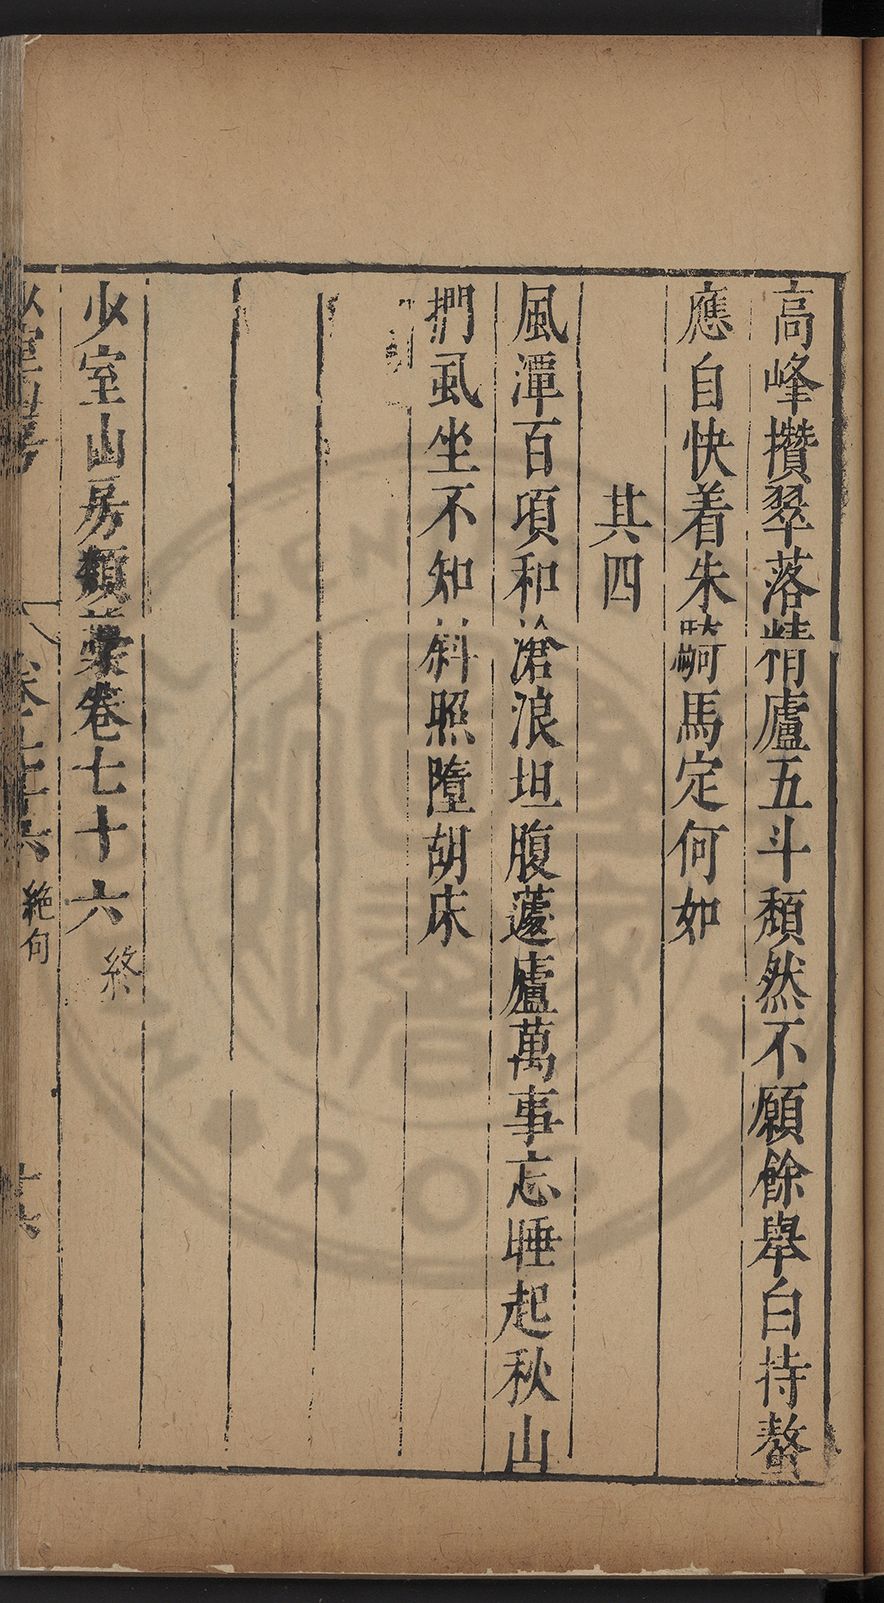 高峰攢翠落精廬五斗頹然不願餘舉白持螯
應自快着朱騎馬定何如
其四
風潭百項和滄浪坦腹蘧廬萬事忘睡起秋山
捫虱坐不知斜照墮胡床
少室山房類藁卷七十六 終
少室山房 卷七十六 絶句 廿六